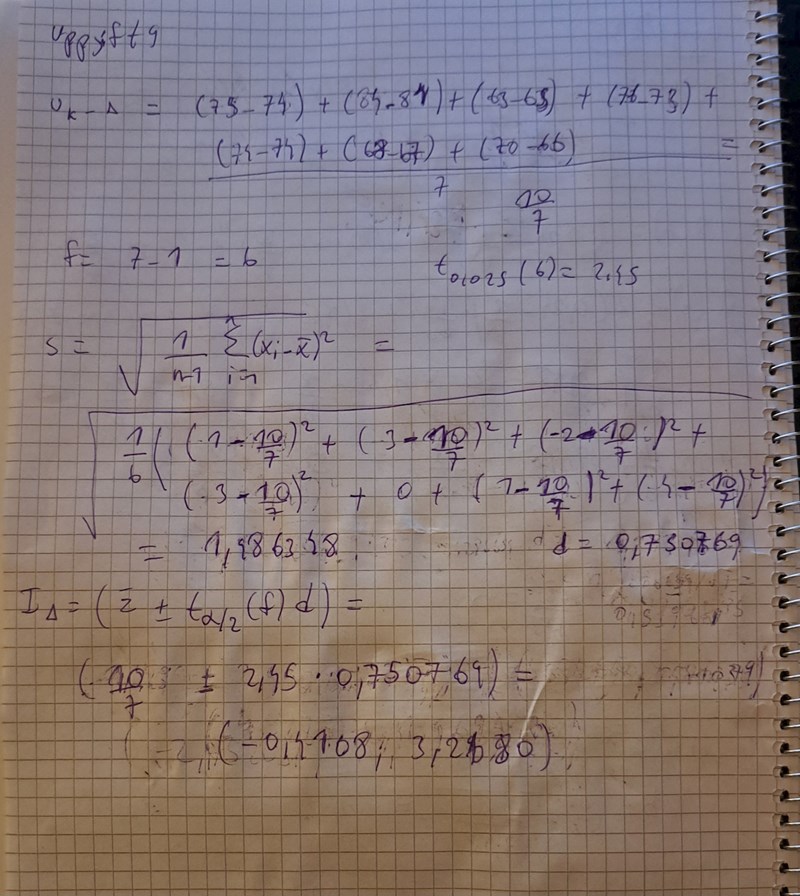 uppgift 9
u_k-Δ = (75-74) + (84-81) + (63-65) + (76-73) +
(74-74) + (68-67) + (70-66) =
7
10/7
f = 7-1 = 6
t_0,025 (6) = 2,45
s = √(1/(n-1) Σ_{i=1}^{n} (x_i - x̄)²) =
√(1/6 ((1-10/7)² + (3-10/7)² + (-2-10/7)² +
(3-10/7)² + 0 + (1-10/7)² + (4-10/7)²))
= 1,986348
d = 0,750769
I_Δ = (z̄ ± t_α/2 (f) d) =
(10/7 ± 2,45 · 0,750769) =
(-0,4108; 3,2680)